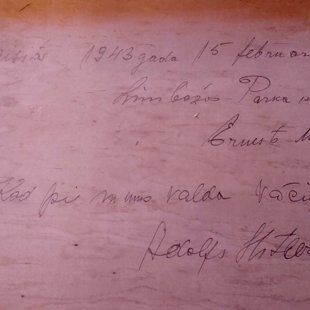 1943 gada 15 februar
Limbažos Parka
Ernests M
Kad pie mums valda Vāci
Adolfs Hitler